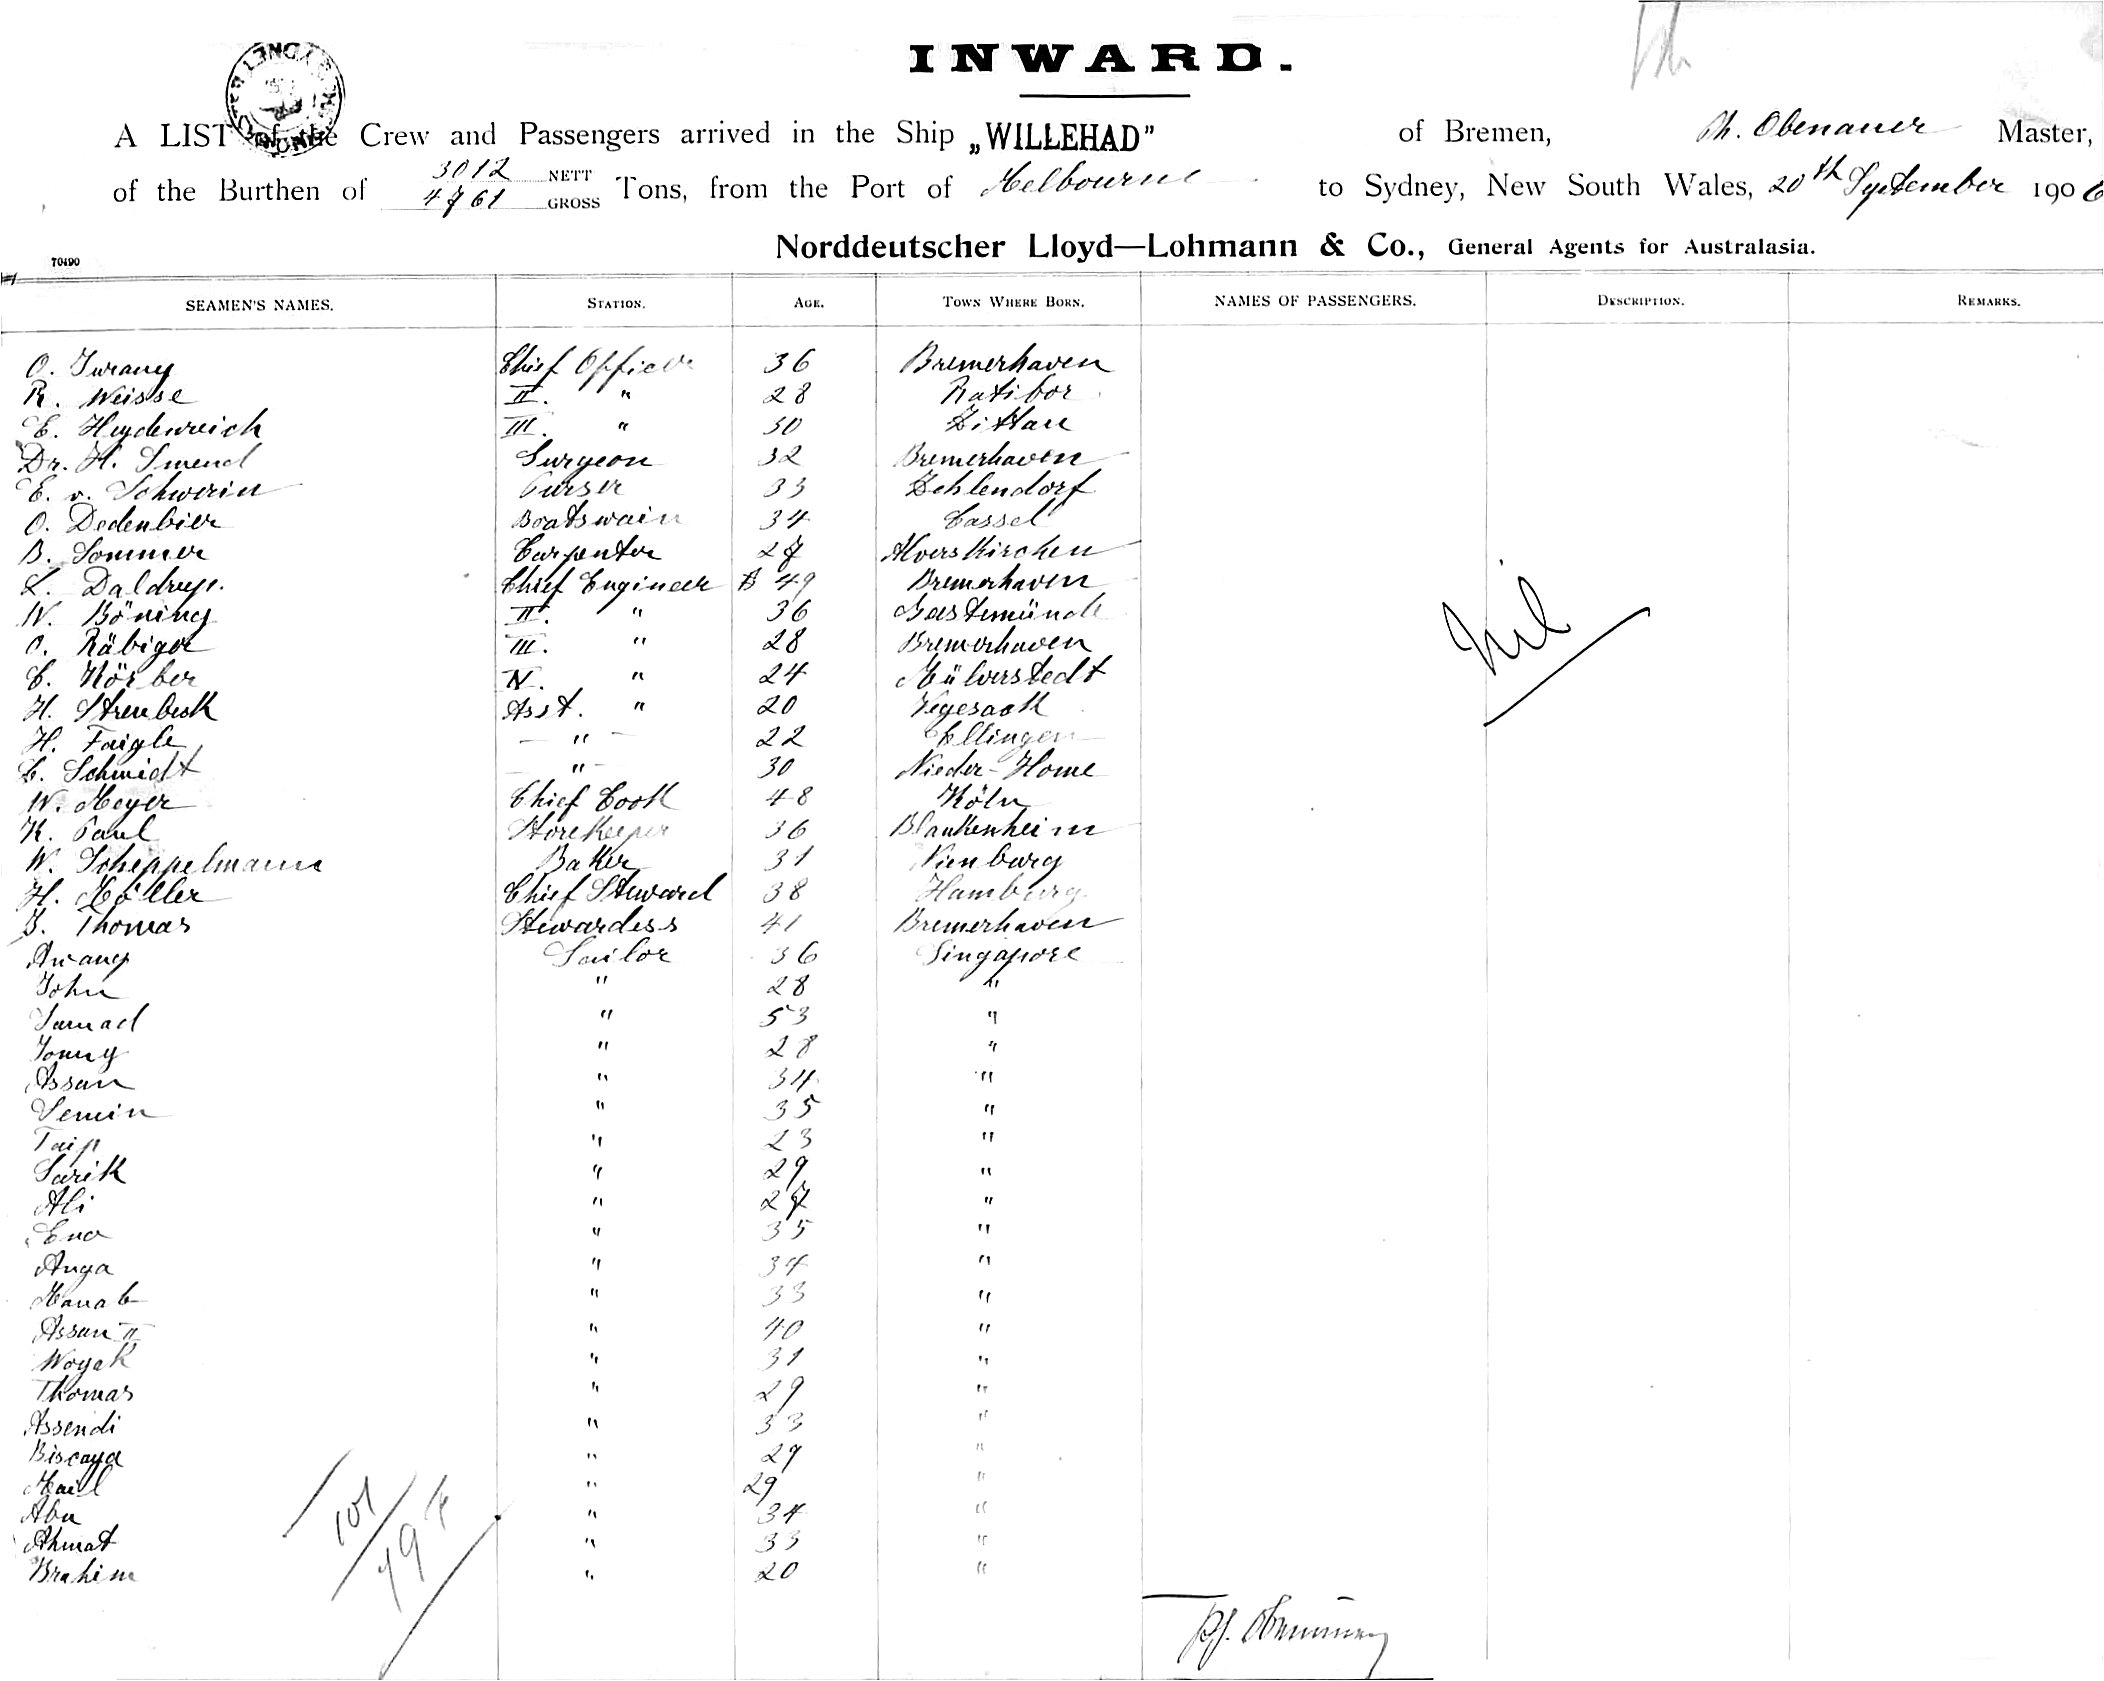 INWARD.
A LIST of the Crew and Passengers arrived in the Ship „WILLEHAD” of Bremen, Ph. Obenauer Master,
of the Burthen of 3012 NETT 4761 GROSS Tons, from the Port of Melbourne to Sydney, New South Wales, 20th September 1906
Norddeutscher Lloyd—Lohmann & Co., General Agents for Australasia.
70490
SEAMEN'S NAMES. STATION. AGE. TOWN WHERE BORN. NAMES OF PASSENGERS. DESCRIPTION. REMARKS.
O. Chief Officer 36 Bremerhaven
R. Weisse II. " 28 Ratibor
E. Heydenreich III. " 30 Zittau
Dr. H. Smend Surgeon 32 Bremerhaven
E. v. Schwerin Purser 33 Zehlendorf
O. Dedenbier Boatswain 34 Cassel
B. Sommer Carpenter 27 Alverskirchen
L. Daldrup. Chief Engineer 49 Bremerhaven
W. Böning II. " 36 Geestemünde
O. Räbiger III. " 28 Bremerhaven
C. Körber IV. " 24 Mülverstedt
H. Strenbeck Asst. " 20 Vegesack
H. Faigle — " — 22 Ellingen
C. Schmidt — " — 30 Nieder-Hone
W. Meyer Chief Cook 48 Köln
K. Paul Storekeeper 36 Blankenheim
W. Scheppelmann Baker 31 Nienburg
H. Möller Chief Steward 38 Hamburg
J. Thomas Stewardess 41 Bremerhaven
Awang Sailor 36 Singapore
John " 28 "
Samad " 53 "
Jonny " 28 "
Assan " 34 "
Semin " 35 "
Taip " 23 "
Sarik " 29 "
Ali " 27 "
Eno " 35 "
Anga " 34 "
Manab " 33 "
Assan II " 40 "
Woyak " 31 "
Thomas " 29 "
Assendi " 33 "
Biscaya " 29 "
Mail " 29 "
Abu " 34 "
Ahmat " 33 "
Brahim " 20 "
Nil
101
Ph. Obenauer